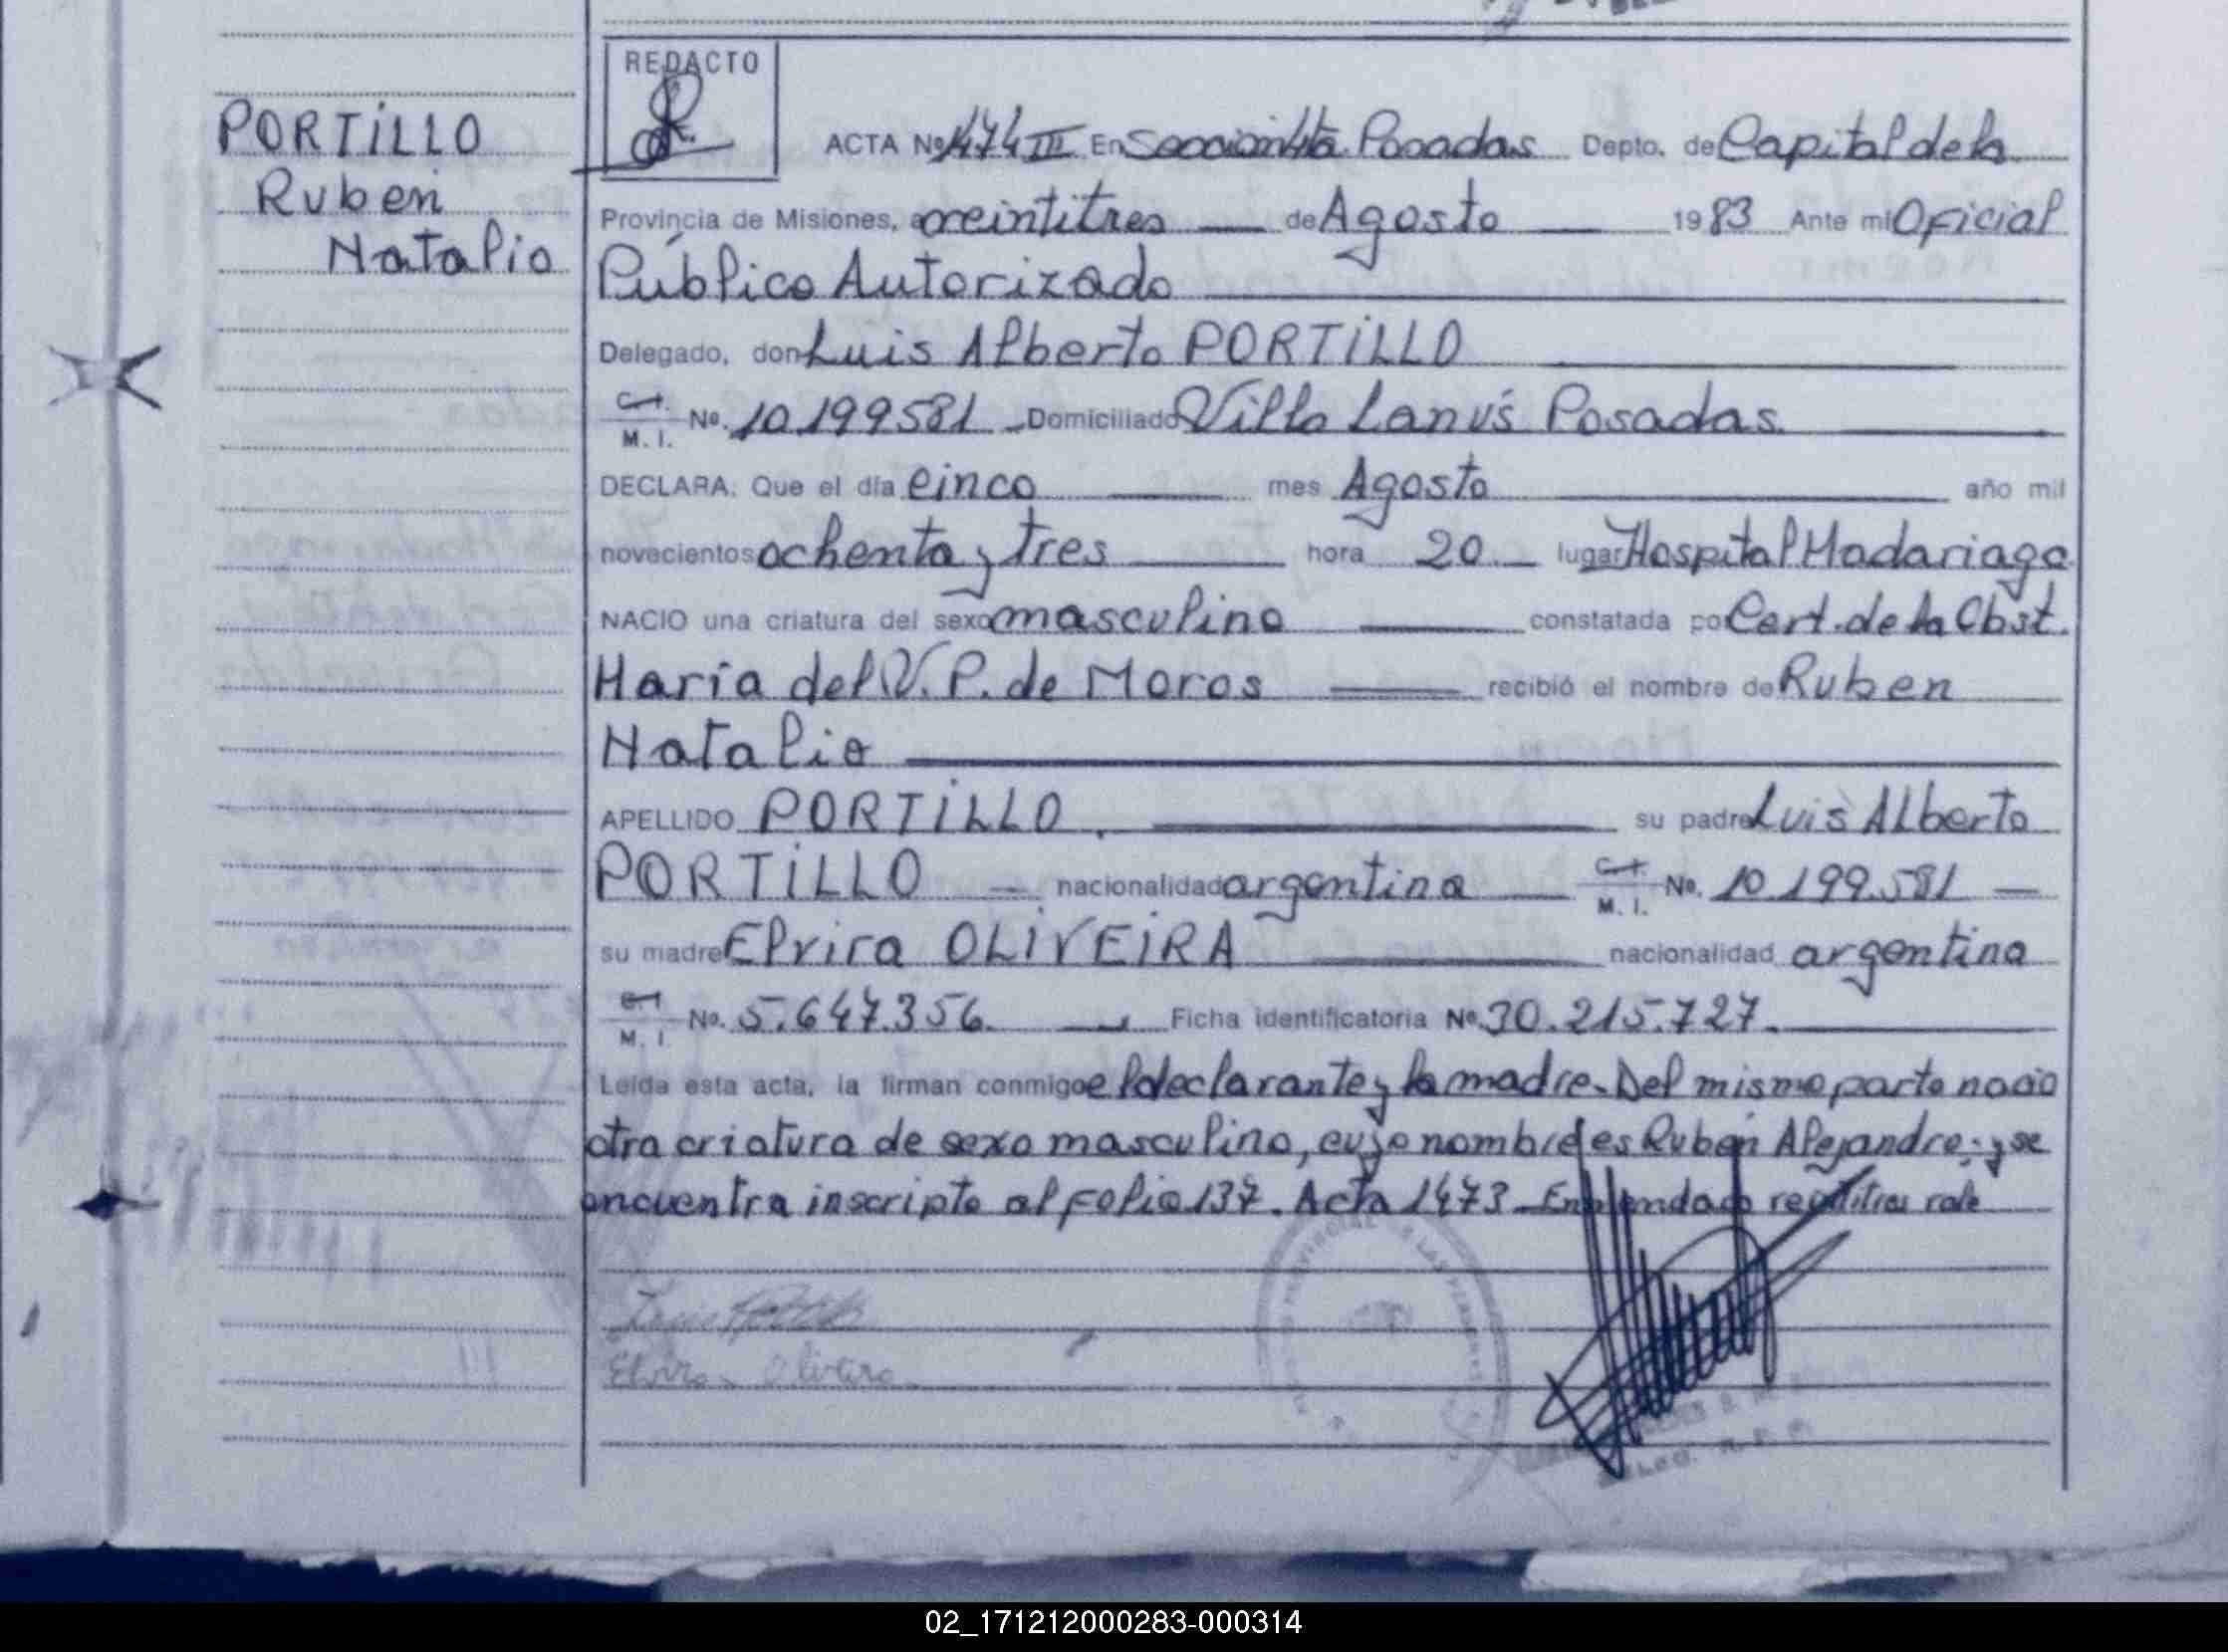 REDACTO
PORTILLO
Ruben
Natalio
ACTA Nº 1474 III En Sección 1ra Posadas Depto. de Capital de la
Provincia de Misiones, a veintitres de Agosto 1983 Ante mi Oficial
Público Autorizado
Delegado, don Luis Alberto PORTILLO
C. I.
M. I. Nº. 10.199581 Domiciliado Villa Lanús Posadas.
DECLARA: Que el día cinco mes Agosto año mil
novecientos ochenta y tres hora 20 lugar Hospital Madariaga
NACIO una criatura del sexo masculino constatada por Cert. de la Obst.
María del V. P. de Moros recibió el nombre de Ruben
Natalio
APELLIDO PORTILLO. su padre Luis Alberto
PORTILLO nacionalidad argentina C. I.
M. I. Nº. 10.199.581
su madre Elvira OLIVEIRA nacionalidad argentina
C. I.
M. I. No. 5.647.356 Ficha identificatoria Nº 30.215.727.
Leída esta acta, la firman conmigo el declarante y la madre. Del mismo parto nació
otra criatura de sexo masculino, cuyo nombre es Ruben Alejandro; y se
encuentra inscripto al folio 137. Acta 1473 Enmendado veintitres vale
Elvira Oliveira
02_171212000283-000314